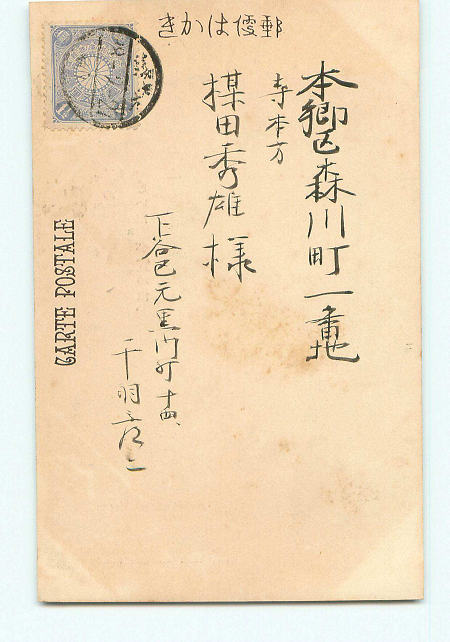 きかは便郵
本郷区森川町一番地
寺本方
楳田秀雄様
下谷区元黒門町十四、
千羽
CARTE POSTALE